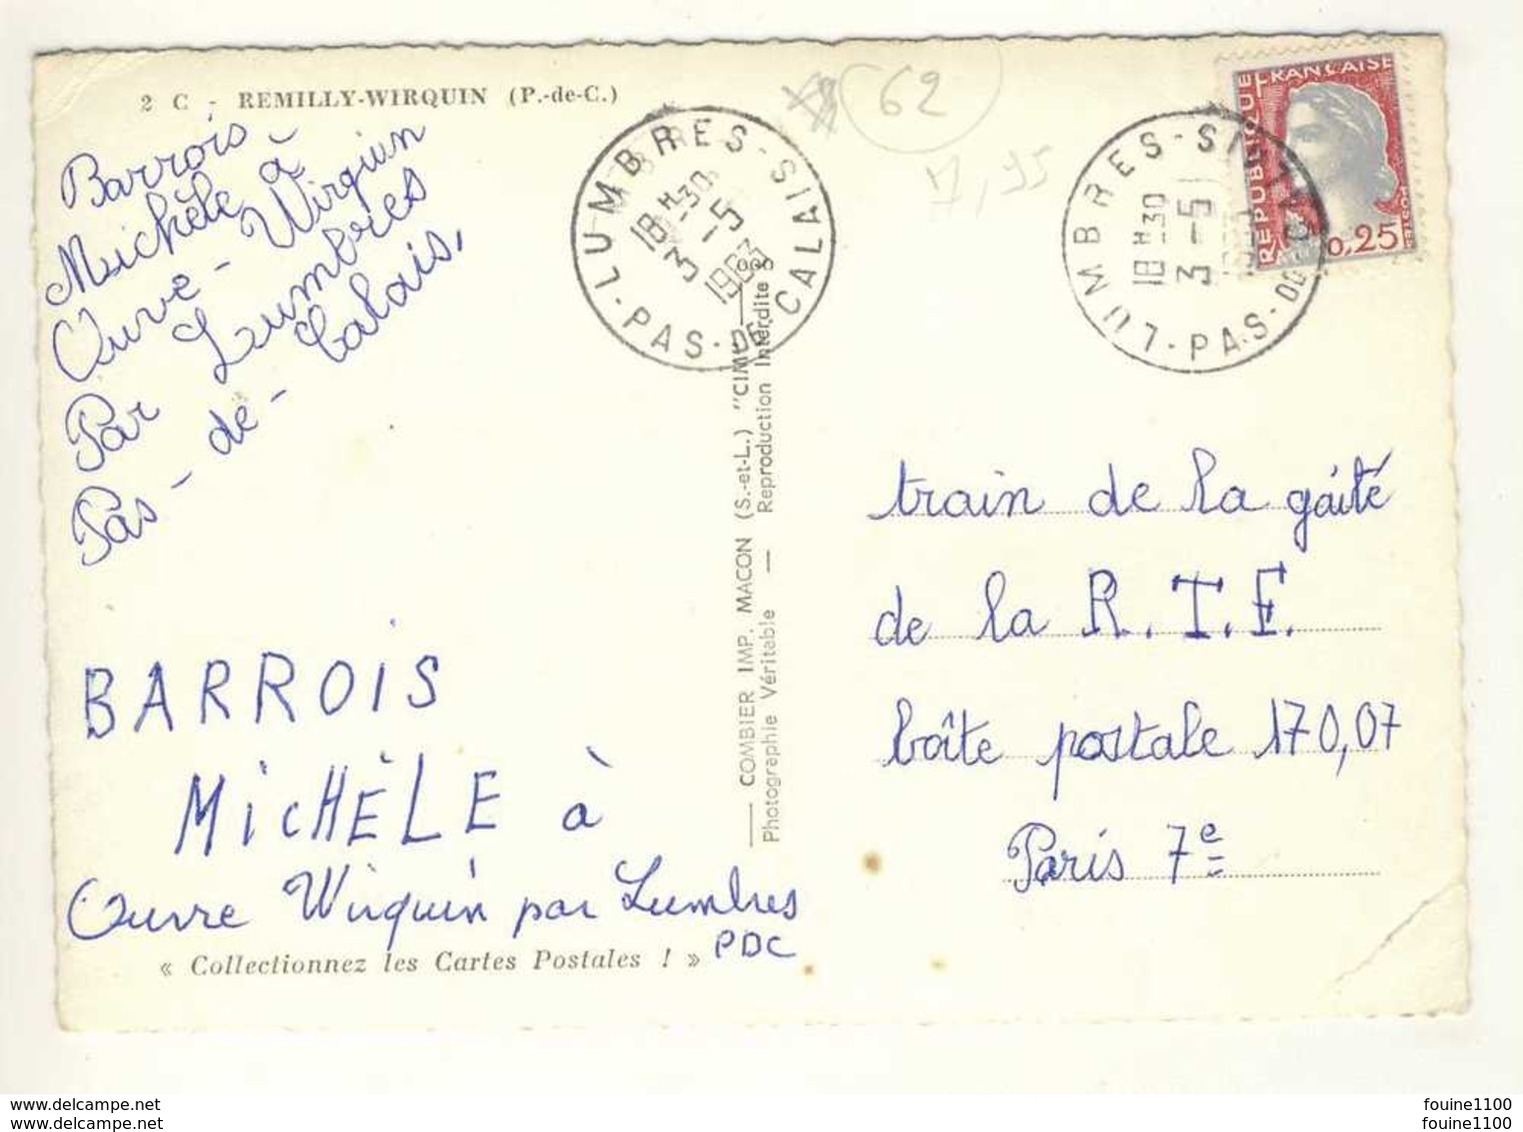 2 C - REMILLY-WIRQUIN (P.-de-C.)
Barrois
Michèle à
Ouve-Wirquin
Par Lumbres
Pas-de-Calais.
BARROIS
MICHÈLE à
Ouvre Wirquin par Lumbres
PDC
« Collectionnez les Cartes Postales ! »
COMBIER IMP. MACON (S.-et-L.) "CIM"
Photographie Véritable — Reproduction Interdite
LUMBRES-
PAS-DE-CALAIS
18 H 30
3-5
1963
62
LUMBRES-
PAS-DE-CALAIS
18 H 30
3-5
REPUBLIQUE
FRANÇAISE
0,25
POSTES
train de la gaité
de la R.T.F.
boîte postale 170,07
Paris 7e
www.delcampe.net
www.delcampe.net
fouine1100
fouine1100